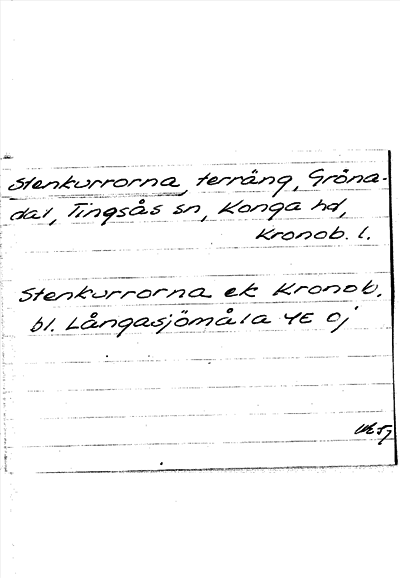 Stenkurrorna, terräng, Gröna-
dal, Tingsås sn, Konga hd,
Kronob. l.
Stenkurrorna ek Kronob.
bl. Långasjömåla 4E 0j